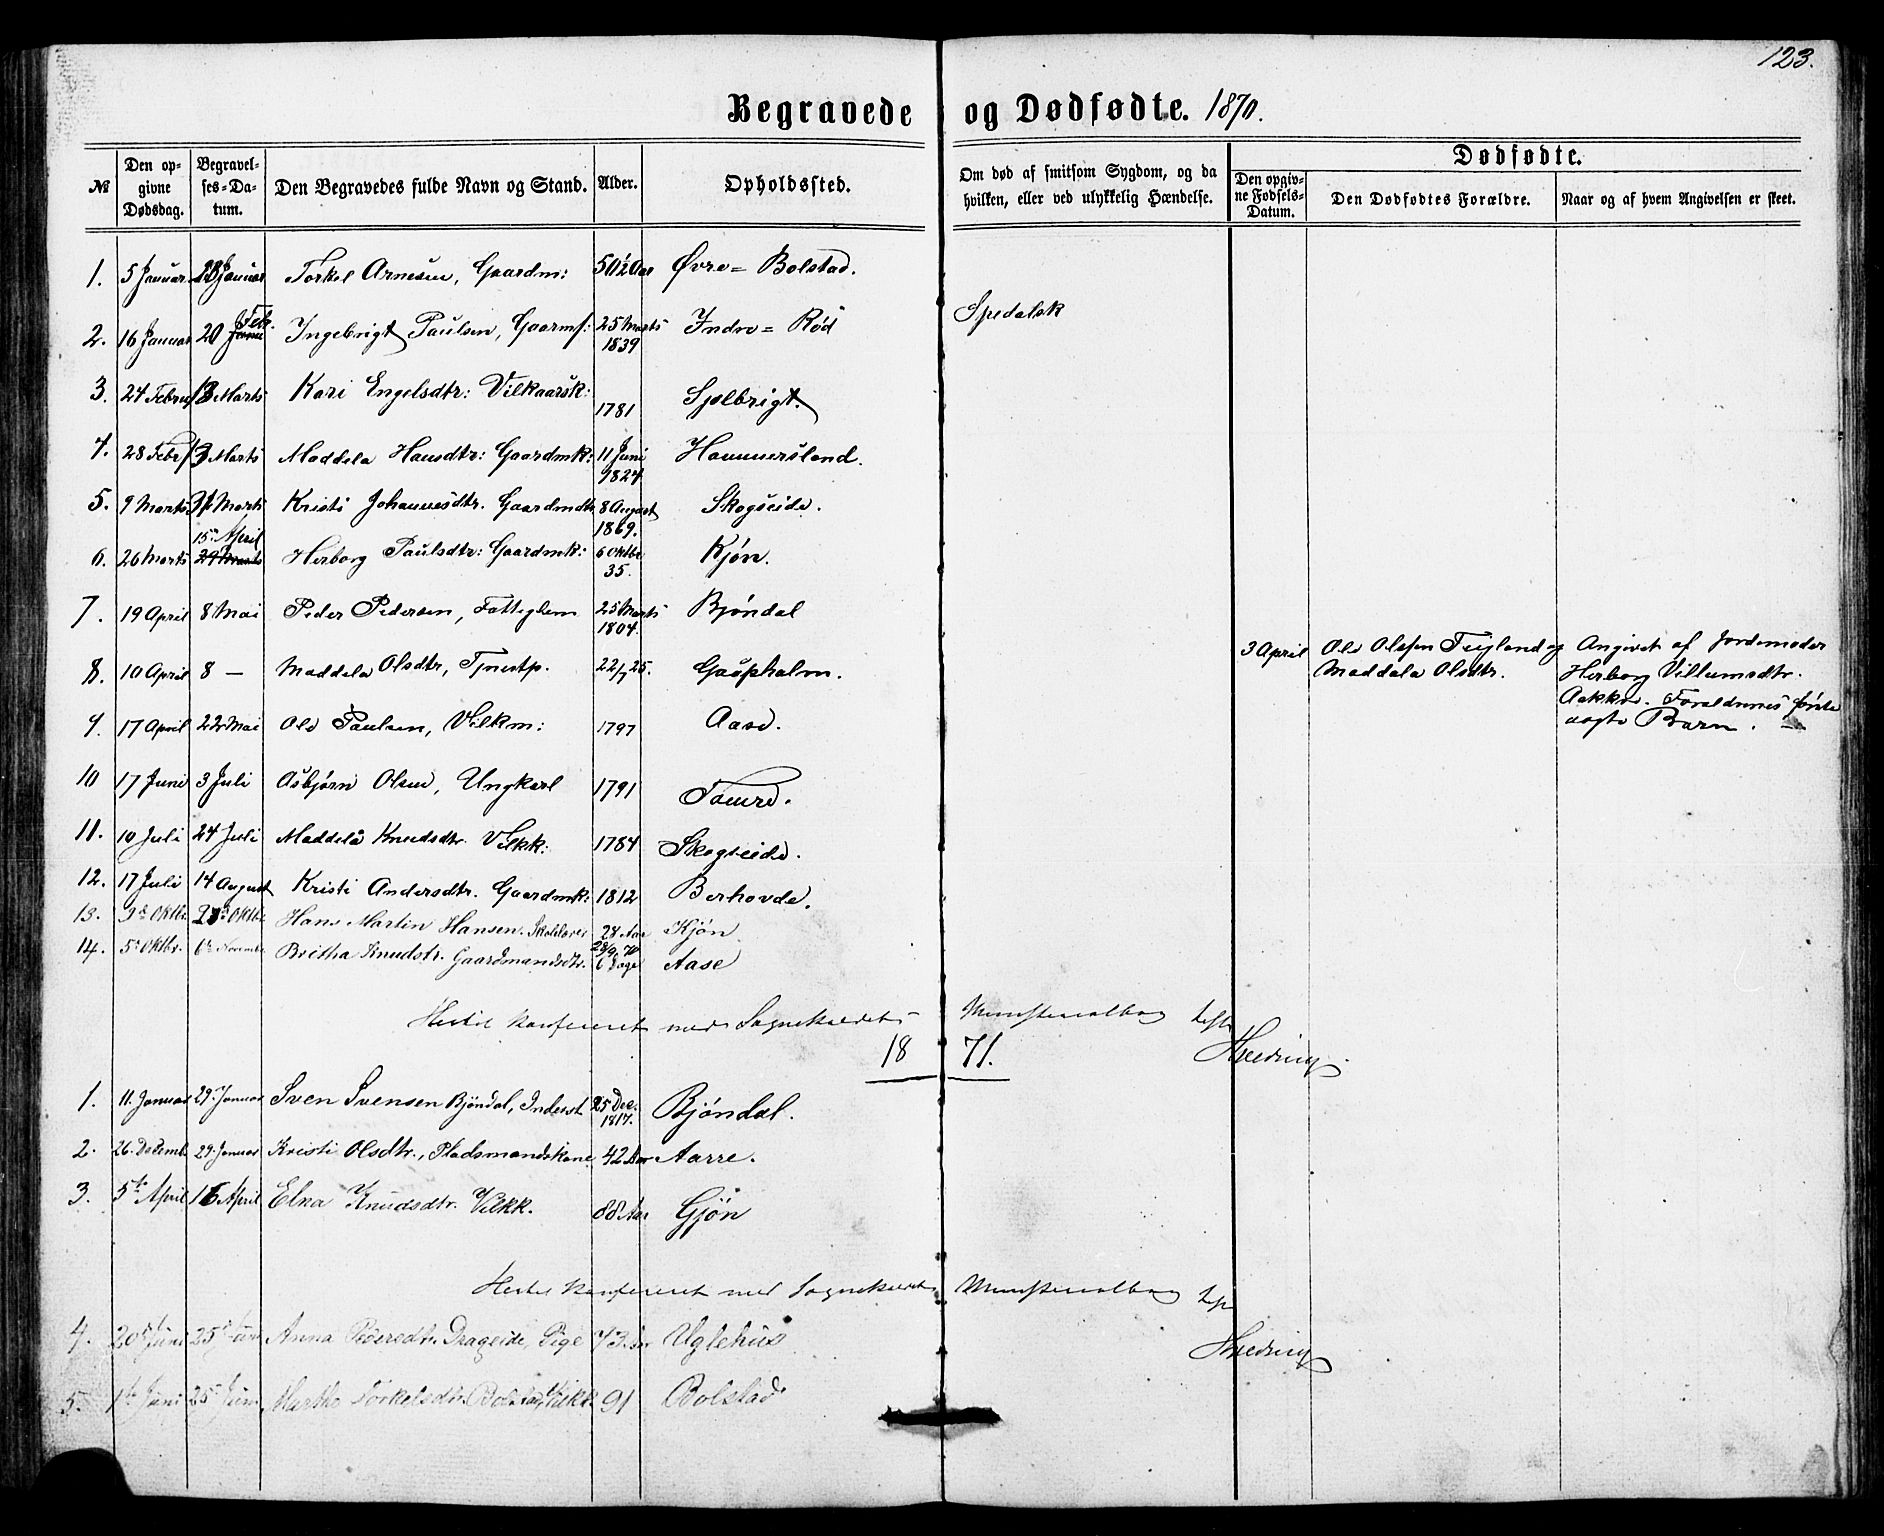 123.
Begravede og Dødfødte. 1870.
№ Den opgivne Dødsdag. Begravelses-Datum. Den Begravedes fulde Navn og Stand. Alder. Opholdssted. Om død af smitsom Sygdom, og da hvilken, eller ved ulykkelig Hændelse. Dødfødte.
Den opgivne Fødsels-Datum. Den Dødfødtes Forældre. Naar og af hvem Angivelsen er skeet.
1. 5 Januar 28 Januar Torkel Arnesen, Gaardm: 50½ Aar Øvre= Bolstad.
2. 16 Januar 20 Feb. Ingebrigt Paulsen, Gaarmf: 25 Marts 1839 Indre= Rød Spedalsk
3. 24 Febru 13 Marts Kari Engelsdtr: Vilkaarsk: 1781 Sjølbrigt.
4. 28 Febr 13 Marts Maddela Hansdtr: Gaardmk: 11 Juni 1824 Hammersland.
5. 9 Marts 31 Marts Kristi Johannesdtr. Gaardmdtr 8 August 1869. Skogseide.
6. 26 Marts 15de April 29 Marts Herborg Paulsdtr: Gaardmk: 6 Oktbr 35. Kjøn.
7. 19 April 8 Mai Peder Pedersen, Fattiglem 25 Marts 1804. Bjöndal
8. 10 April 8 — Maddela Olsdtr, Tjnestp. 22/7 25. Gaaphalm.
3 April Ole Olsen Teigland og Maddala Olsdtr. Angivet af Jordemoder Herborg Villumsdtr. Aakkre. Forældrenes første ægte Barn. —
9. 17 April 22 Mai Ole Paulsen, Vilkm: 1797 Aase.
10 17 Juni 3 Juli Asbjørn Olsen, Ungkarl 1791 Toure.
11. 10 Juli 24 Juli Maddela Knudsdtr. Vilkk: 1784 Skogseide.
12. 17 Juli 14 August Kristi Andersdtr. Gaardmk: 1812 Berhovde.
13. 3de Oktbr. 23de Oktbr Hans Martin Hansen. Skolelærer 28 Aar Kjøn
14. 5te Oktbr. 6te Novembr Britha Knudstr. Gaardmandsdtr. 28/9 70 6 Dage Aase
Hertil konfereret med Sognekaldets Ministerialbog
1871.
1. 11. Januar 29. Januar Sven Svensen Bjöndal, Inderst 25 Dec. 1817. Bjöndal.
2. 26. Decemb. 29. Januar Kristi Olsdtr., Pladsmandskone 42 Aar Aarre.
3. 5te April 16 April Elna Knudsdtr. Vilkk. 88 Aar Gjön
Hertil konfereret med Sognekaldets Ministerialbog
4. 20de Juni 25de Juni Anna Pedersdtr. Drageide, Pige 73 Aar Uglehus
5. 1te Juni 25 Juni Marthe Torkelsdtr. Bolstad, Vilkk. 91 Bolstad